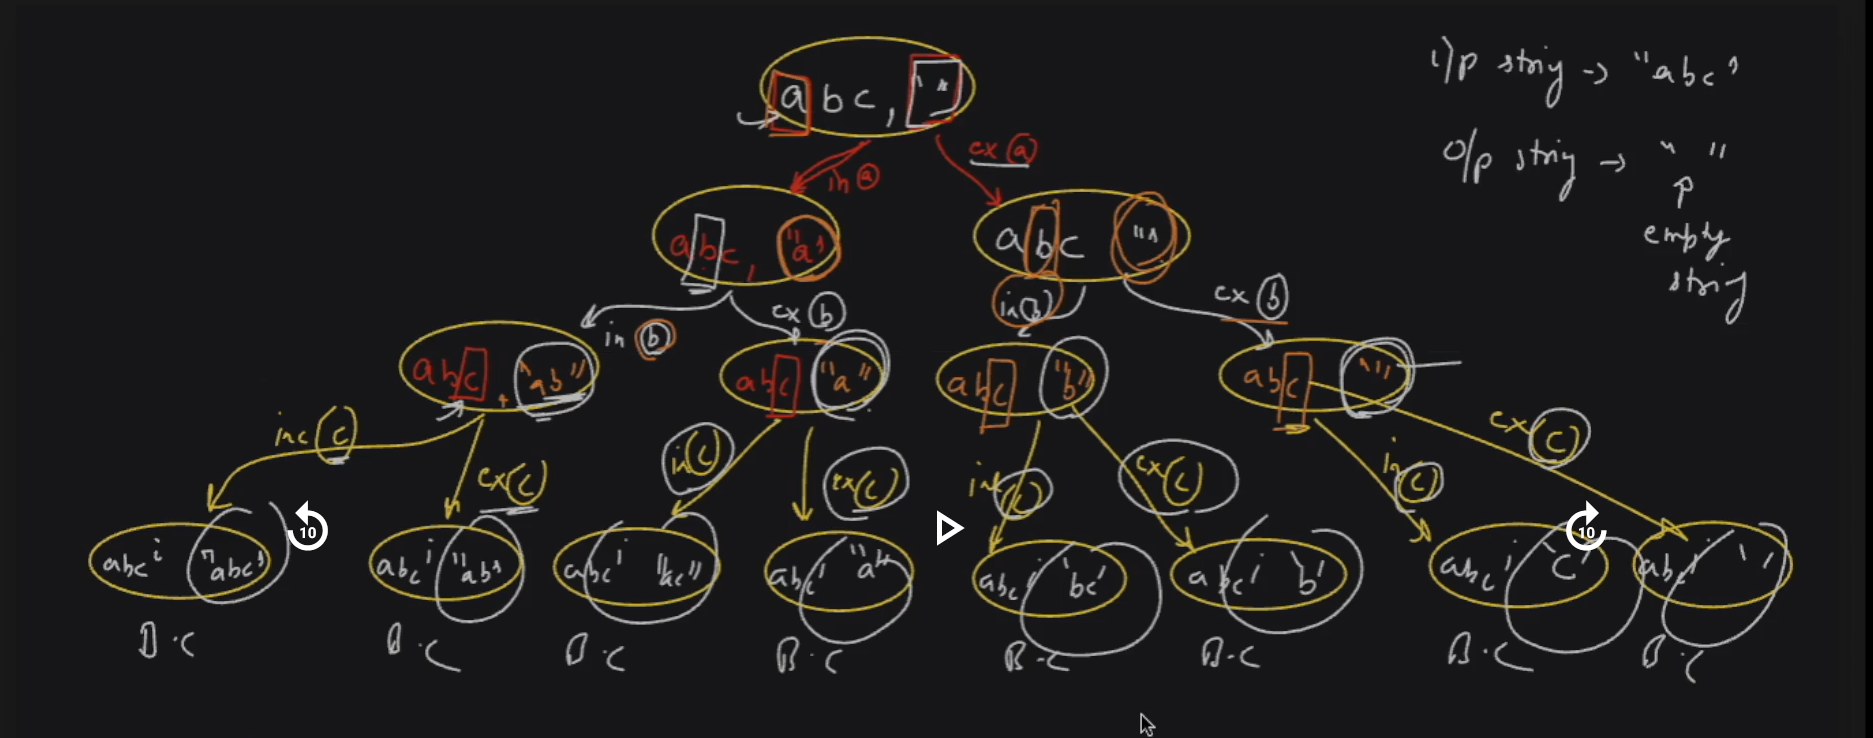 abc, " "
i/p string -> "abc"
o/p string -> " "
empty
string
in a
ex a
abc, "a"
abc ""
in b
ex b
in b
ex b
abc, "ab"
abc "a"
abc "b"
abc ""
inc c
ex c
in c
ex c
in c
ex c
in c
ex c
abc "abc"
abc "ab"
abc "ac"
abc "a"
abc 'bc'
abc 'b'
abc 'c'
abc ' '
B.C
B.C
B.C
B.C
B.C
B.C
B.C
B.C
10
10